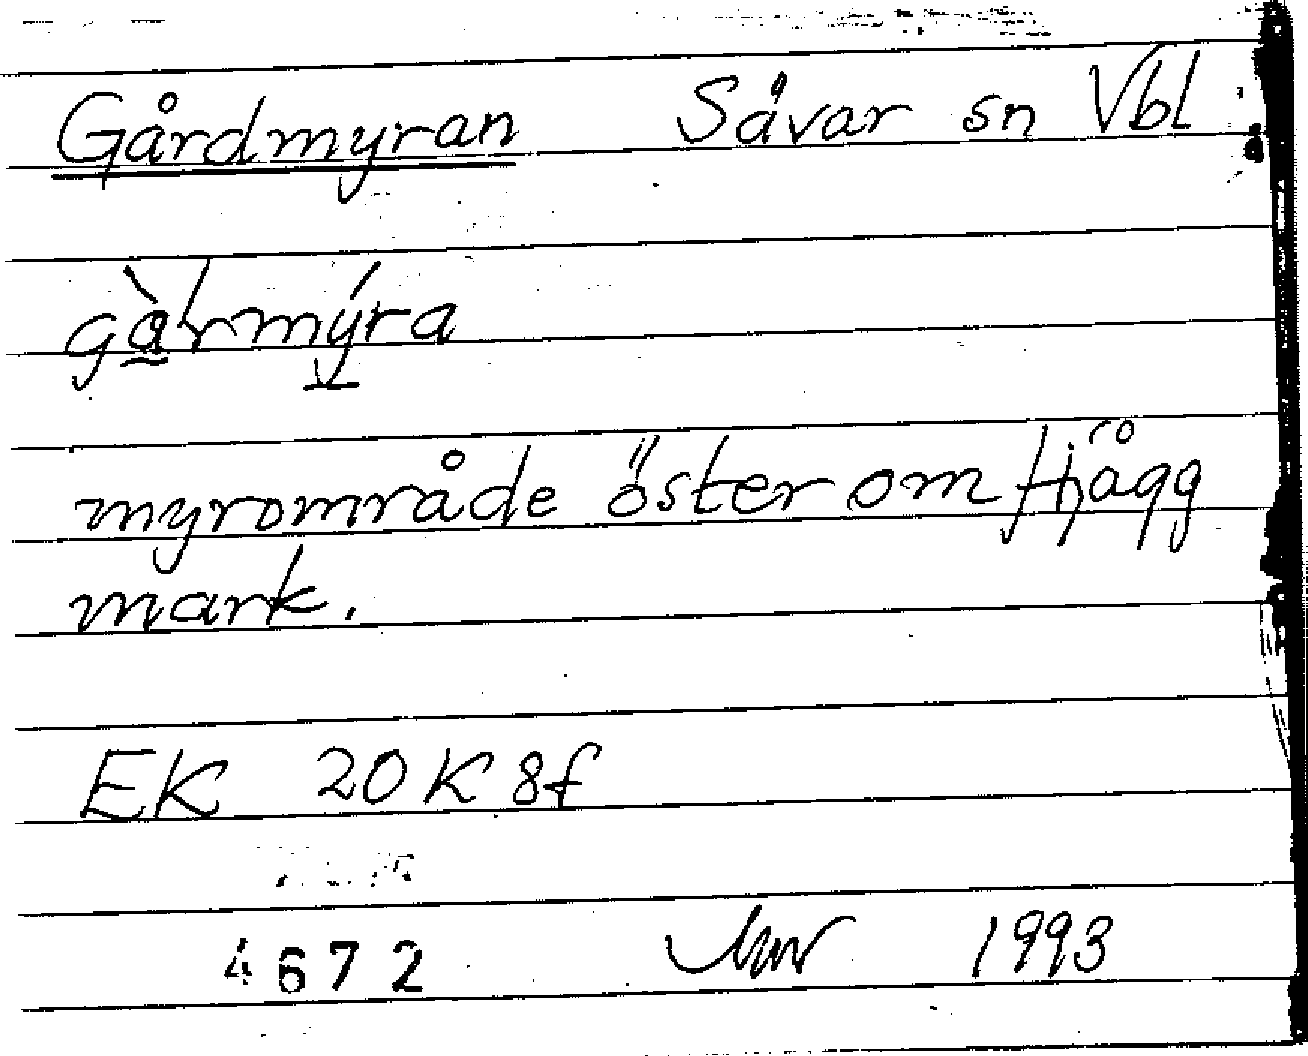 Gårdmyran Sävar sn Vbl
gàrmýra
myrområde öster om Hjågg
mark.
EK 20K8f
4672 1993